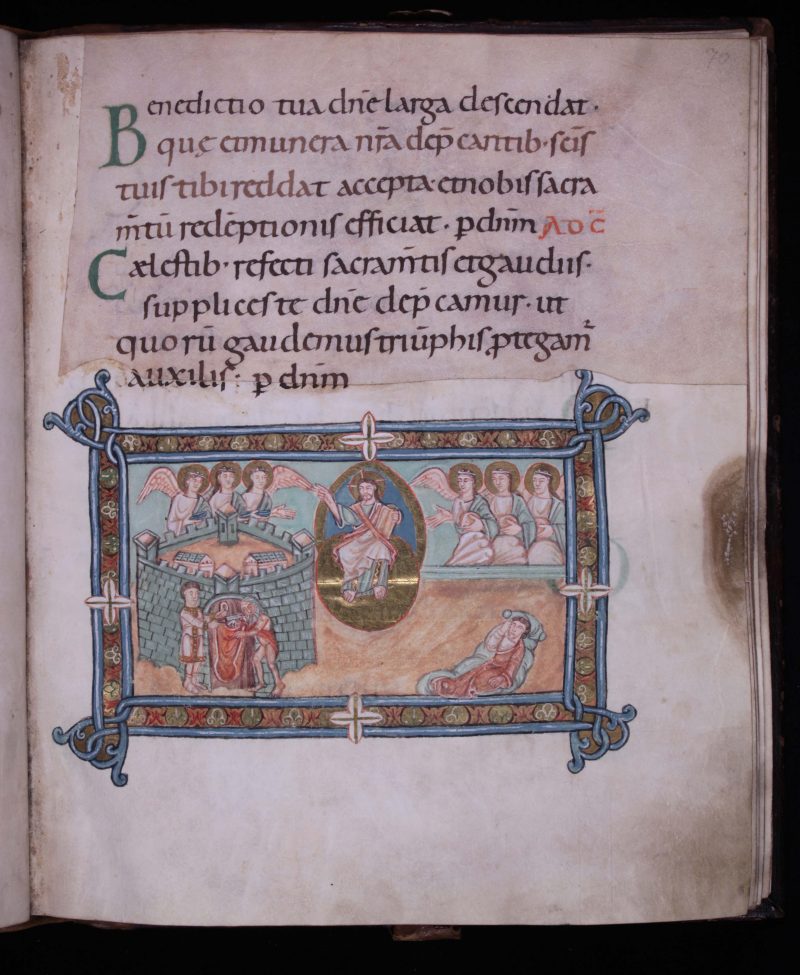 70
Benedictio tua dn̄e larga descendat·
quę et munera nr̄a dep̄cantib·sc̄is
tuis·tibi reddat accepta·et nobis sacra
m̄tū redēptionis efficiat· p dn̄m AD C̄
Cælestib·refecti sacram̄tis et gaudiis·
supplices te dn̄e dep̄camur·ut
quorū gaudemus triūphis ꝓtegam̄r
auxiliis· p dn̄m